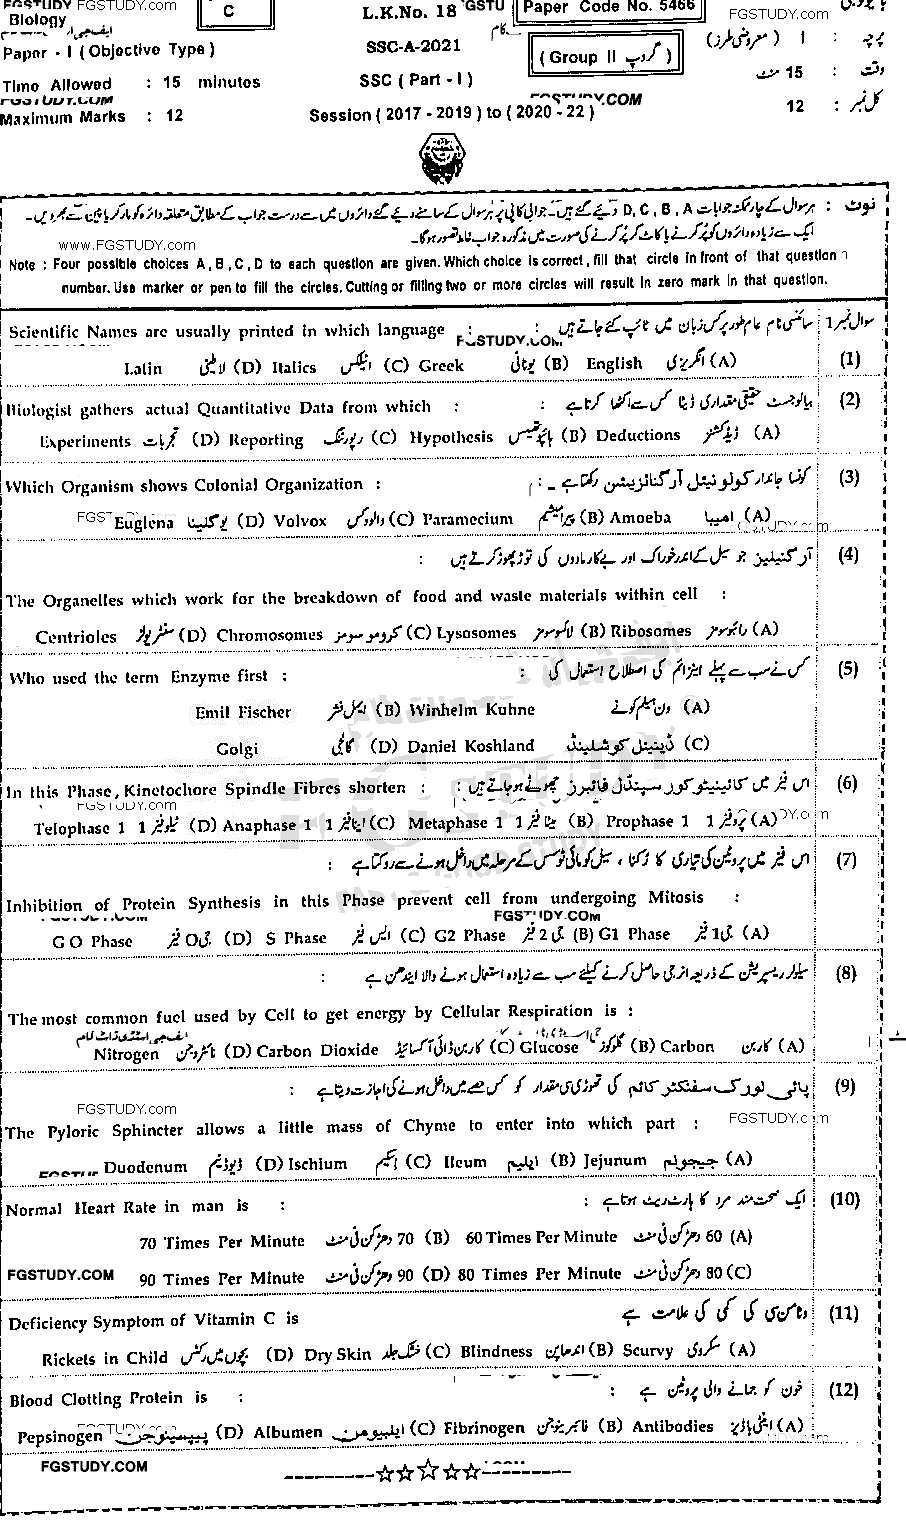 FGSTUDY FGSTUDY.com
Biology
C
L.K.No. 18
Paper Code No. 5466
FGSTUDY.com
Paper - I ( Objective Type )
SSC-A-2021
( Group II گروپ )
پرچہ : I ( معروضی طرز )
Time Allowed : 15 minutes
SSC ( Part - I )
وقت : 15 منٹ
FGSTUDY.COM
Maximum Marks : 12
Session ( 2017 - 2019 ) to ( 2020 - 22 )
کل نمبر : 12
نوٹ : ہر سوال کے چار ممکنہ جوابات D , C , B , A دئیے گئے ہیں۔ جوابی کاپی پر ہر سوال کے سامنے دیئے گئے دائروں میں سے درست جواب کے مطابق متعلقہ دائرہ کو مارکر یا پین سے بھر دیں۔
ایک سے زیادہ دائروں کو پُر کرنے یا کاٹ کر پُر کرنے کی صورت میں مذکورہ جواب غلط تصور ہو گا۔
www.FGSTUDY.com
Note : Four possible choices A , B , C , D to each question are given. Which choice is correct , fill that circle in front of that question
number. Use marker or pen to fill the circles. Cutting or filling two or more circles will result in zero mark in that question.
سوال نمبر 1 سائنسی نام عام طور پر کس زبان میں ٹائپ کئے جاتے ہیں :
Scientific Names are usually printed in which language :
FGSTUDY.COM
(1) (A) انگریزی English (B) یونانی Greek (C) اٹیلکس Italics (D) لاطینی Latin
(2) بیالوجسٹ حقیقی مقداری ڈیٹا کس سے اکٹھا کرتا ہے :
Biologist gathers actual Quantitative Data from which :
(A) ڈیڈکشنز Deductions (B) ہائپوتھیسس Hypothesis (C) رپورٹنگ Reporting (D) تجربات Experiments
(3) کونسا جاندار کولونیئل آرگنائزیشن رکھتا ہے ۔
Which Organism shows Colonial Organization :
(A) امیبا Amoeba (B) پیرامیشیم Paramecium (C) والوکس Volvox (D) یوگلینا Euglena
(4) آرگنیلیز جو سیل کے اندر خوراک اور بے کار مادوں کی توڑ پھوڑ کرتے ہیں :
The Organelles which work for the breakdown of food and waste materials within cell :
(A) رائبوسومز Ribosomes (B) لائسوسومز Lysosomes (C) کروموسومز Chromosomes (D) سنٹریولز Centrioles
(5) کس نے سب سے پہلے اینزائم کی اصطلاح استعمال کی :
Who used the term Enzyme first :
(A) ون ہیلم کوہنے Winhelm Kuhne (B) ایمل فشر Emil Fischer
(C) ڈینیئل کوشلینڈ Daniel Koshland (D) گالجی Golgi
(6) اس فیز میں کائینیٹوکور سپنڈل فائبرز چھوٹے ہو جاتے ہیں :
In this Phase , Kinetochore Spindle Fibres shorten :
FGSTUDY.com
(A) پروفیز 1 Prophase 1 (B) میٹا فیز 1 Metaphase 1 (C) اینا فیز 1 Anaphase 1 (D) ٹیلو فیز 1 Telophase 1
(7) اس فیز میں پروٹین کی تیاری کا رُکنا ، سیل کو مائی ٹوسس کے مرحلہ میں داخل ہونے سے روکتا ہے :
Inhibition of Protein Synthesis in this Phase prevent cell from undergoing Mitosis :
FGSTUDY.COM
(A) جی 1 فیز G1 Phase (B) جی 2 فیز G2 Phase (C) ایس فیز S Phase (D) جی O فیز G O Phase
(8) سیلولر ریسپریشن کے ذریعہ انرجی حاصل کرنے کیلئے سب سے زیادہ استعمال ہونے والا ایندھن ہے
The most common fuel used by Cell to get energy by Cellular Respiration is :
(A) کاربن Carbon (B) گلوکوز Glucose (C) کاربن ڈائی آکسائیڈ Carbon Dioxide (D) نائٹروجن Nitrogen
(9) پائی لورک سفنکٹر کائم کی تھوڑی سی مقدار کو کس حصے میں داخل ہونے کی اجازت دیتا ہے :
FGSTUDY.com
The Pyloric Sphincter allows a little mass of Chyme to enter into which part :
(A) جیجونم Jejunum (B) ایلیم Ileum (C) اسکیم Ischium (D) ڈیوڈینم Duodenum
(10) ایک صحت مند مرد کا ہارٹ ریٹ ہوتا ہے :
Normal Heart Rate in man is :
(A) 60 دھڑکن فی منٹ 60 Times Per Minute (B) 70 دھڑکن فی منٹ 70 Times Per Minute
(C) 80 دھڑکن فی منٹ 80 Times Per Minute (D) 90 دھڑکن فی منٹ 90 Times Per Minute
FGSTUDY.COM
(11) وٹامن سی کی کمی کی علامت ہے
Deficiency Symptom of Vitamin C is
(A) سکروی Scurvy (B) اندھا پن Blindness (C) خشک جلد Dry Skin (D) بچوں میں رکٹس Rickets in Child
(12) خون کو جمانے والی پروٹین ہے :
Blood Clotting Protein is :
(A) اینٹی باڈیز Antibodies (B) فائبرینوجن Fibrinogen (C) ایلبیومن Albumen (D) پیپسینوجن Pepsinogen
FGSTUDY.COM